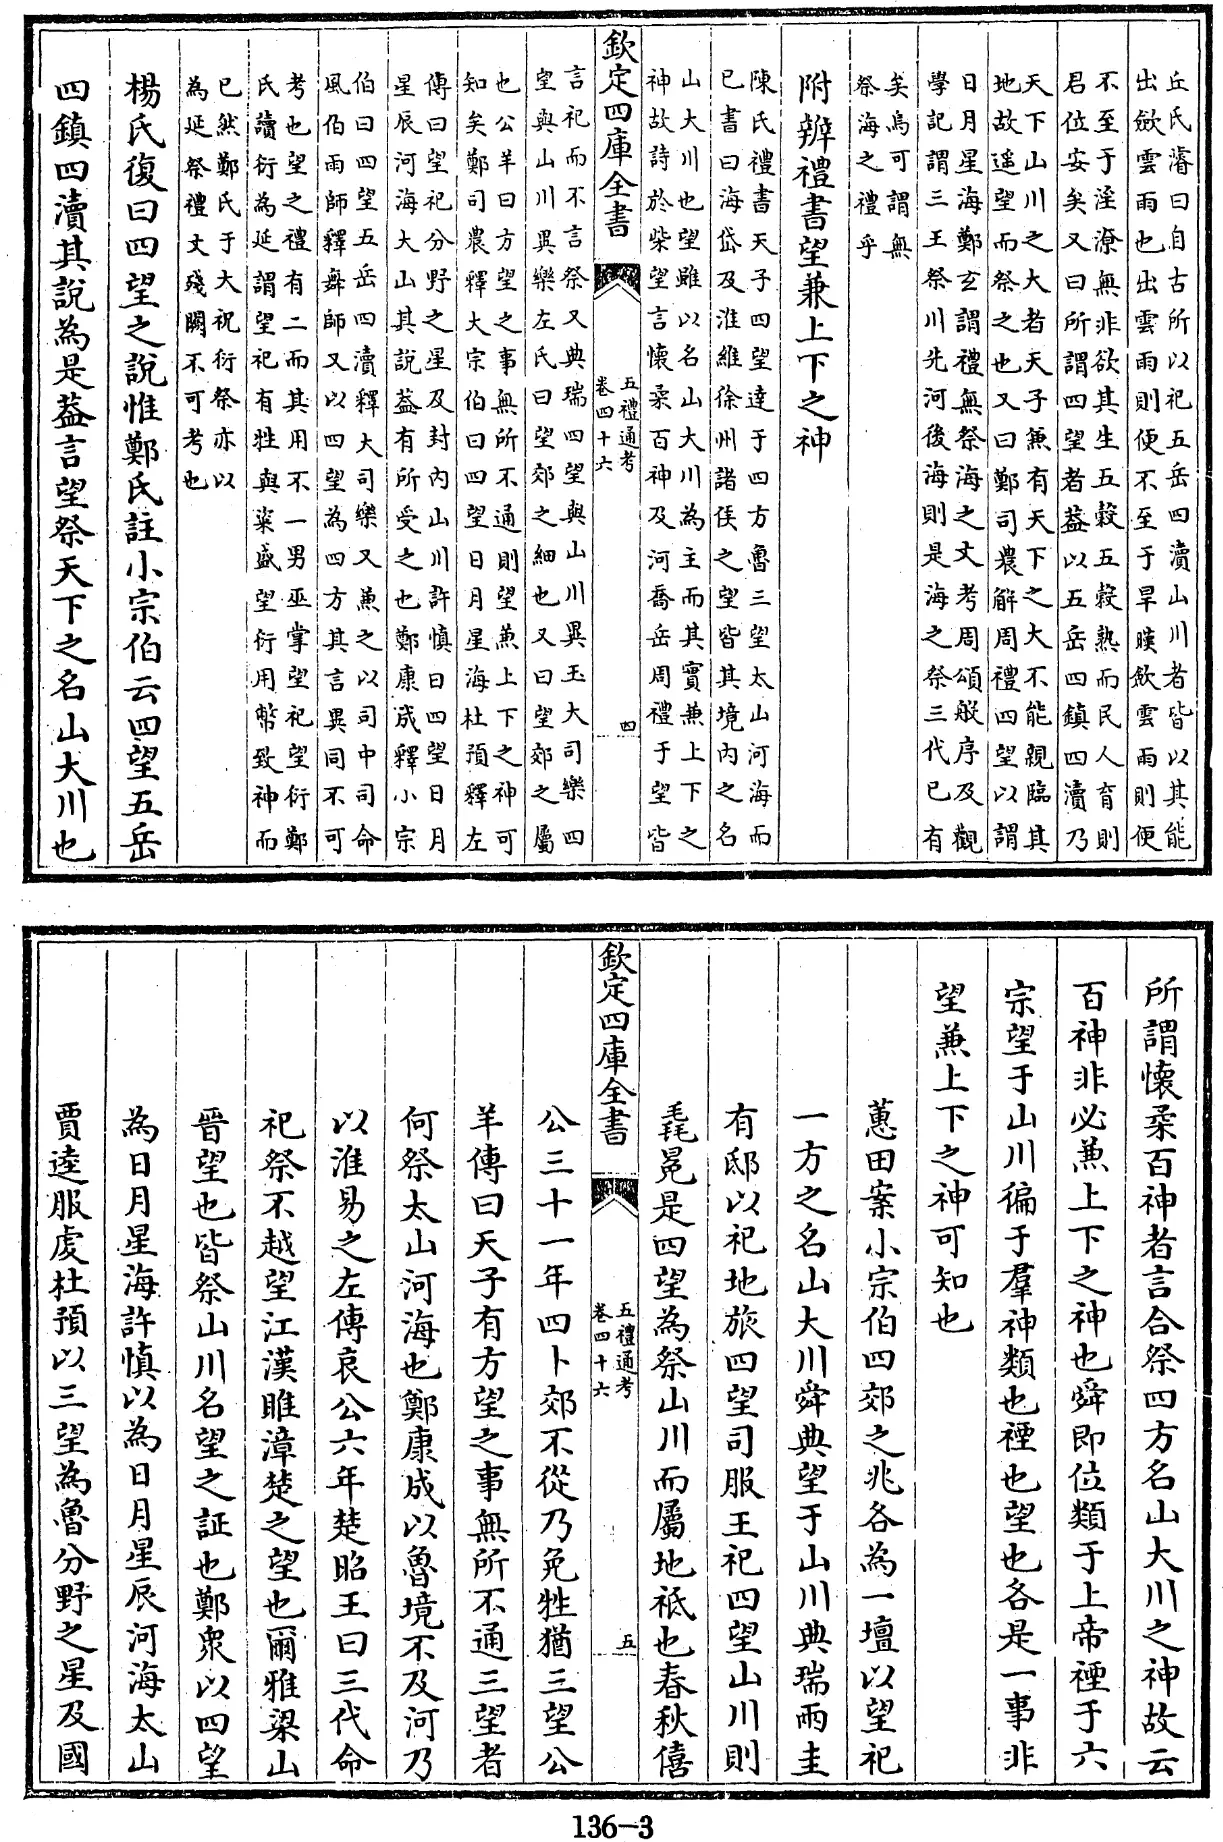 丘氏濬曰自古所以祀五岳四瀆山川者皆以其能
出歛雲雨也出雲雨則便不至于旱暵歛雲雨則便
不至于淫潦無非欲其生五穀五穀熟而民人育則
君位安矣又曰所謂四望者葢以五岳四鎮四瀆乃
天下山川之大者天子兼有天下之大不能親臨其
地故遥望而祭之也又曰鄭司農解周禮四望以謂
日月星海鄭玄謂禮無祭海之文考周頌般序及觀
學記謂三王祭川先河後海則是海之祭三代已有
矣烏可謂無
祭海之禮乎
附辨禮書望兼上下之神
陳氏禮書天子四望達于四方魯三望太山河海而
已書曰海岱及淮維徐州諸侯之望皆其境内之名
山大川也望雖以名山大川為主而其實兼上下之
神故詩於柴望言懷柔百神及河喬岳周禮于望皆
欽定四庫全書
五禮通考
卷四十六
四
言祀而不言祭又典瑞四望與山川異玉大司樂四
望與山川異樂左氏曰望郊之細也又曰望郊之屬
也公羊曰方望之事無所不通則望兼上下之神可
知矣鄭司農釋大宗伯曰四望日月星海杜預釋左
傳曰望祀分野之星及封内山川許慎曰四望日月
星辰河海大山其說葢有所受之也鄭康成釋小宗
伯曰四望五岳四瀆釋大司樂又兼之以司中司命
風伯雨師釋舞師又以四望為四方其言異同不可
考也望之禮有二而其用不一男巫掌望祀望衍鄭
氏讀衍為延謂望祀有牲與粢盛望衍用幣致神而
已然鄭氏于大祝衍祭亦以
為延祭禮文殘闕不可考也
楊氏復曰四望之說惟鄭氏註小宗伯云四望五岳
四鎮四瀆其說為是葢言望祭天下之名山大川也
所謂懷柔百神者言合祭四方名山大川之神故云
百神非必兼上下之神也舜即位類于上帝禋于六
宗望于山川徧于羣神類也禋也望也各是一事非
望兼上下之神可知也
蕙田案小宗伯四郊之兆各為一壇以望祀
一方之名山大川舜典望于山川典瑞兩圭
有邸以祀地旅四望司服王祀四望山川則
毳冕是四望為祭山川而屬地祇也春秋僖
欽定四庫全書
五禮通考
卷四十六
五
公三十一年四卜郊不從乃免牲猶三望公
羊傳曰天子有方望之事無所不通三望者
何祭太山河海也鄭康成以魯境不及河乃
以淮易之左傳哀公六年楚昭王曰三代命
祀祭不越望江漢睢漳楚之望也爾雅梁山
晉望也皆祭山川名望之証也鄭衆以四望
為日月星海許慎以為日月星辰河海太山
賈逵服虔杜預以三望為魯分野之星及國
136-3